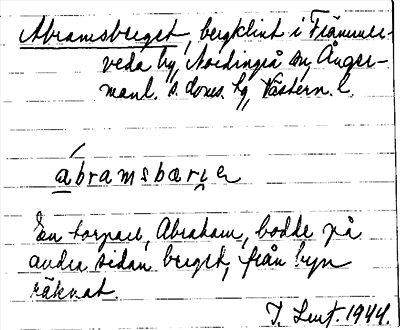 Abramsberget, bergklint i Främmer-
veda by, Nordingrå sn, Ånger-
manl. s. doms. hg, Västern. l.
ábramsbærɩe
En torpare, Abraham, bodde på
andra sidan berget, från byn
räknat.
1944.